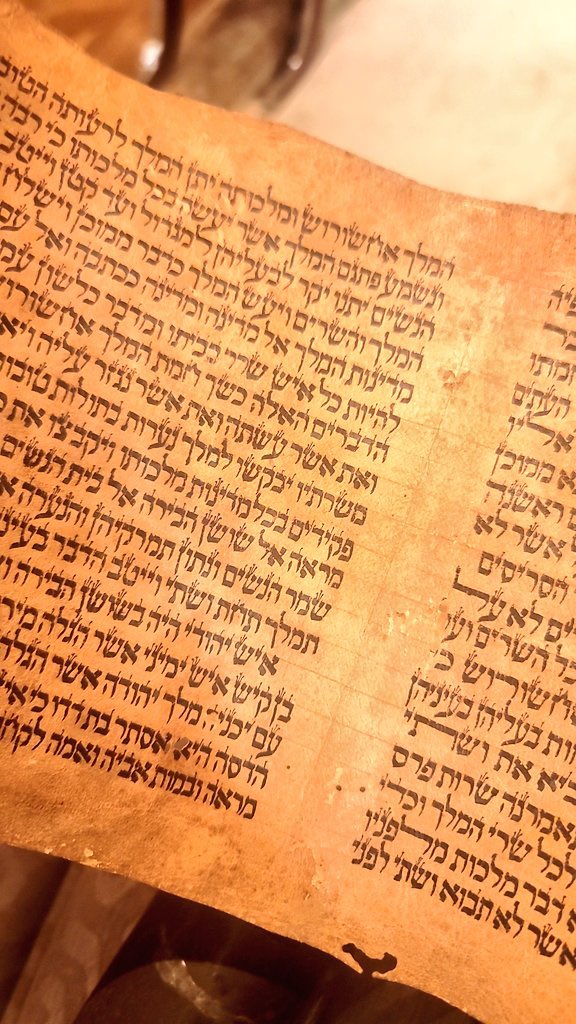 חמתו
העתים
ממוכן
ראשנה
אשר לא
הסריסים
לא על
כל השרים ועל
אחשורוש כי
בעליהן בעיניהן
את ושתי
תאמרנה שרות פרס
לכל שרי המלך וכדי
דבר מלכות מלפניו
אשר לא תבוא ושתי לפני
המלך אחשורוש ומלכותה יתן המלך לרעותה
ונשמע פתגם המלך אשר יעשה בכל מלכותו כי רבה
הנשים יתנו יקר לבעליהן למגדול ועד קטן וייטב
המלך והשרים ויעש המלך כדבר ממוכן וישלח
מדינות המלך אל מדינה ומדינה ככתבה ואל עם
להיות כל איש שרר בביתו ומדבר כלשון
הדברים האלה כשך חמת המלך
ואת אשר עשתה ואת אשר נגזר עליה
משרתיו יבקשו למלך נערות בתולות טובות
פקידים בכל מדינות מלכותו ויקבצו את
מראה אל שושן הבירה אל בית הנשים
שמר הנשים ונתון תמרקיהן והנערה
תמלך תחת ושתי וייטב הדבר בעיני
איש יהודי היה בשושן הבירה
בן קיש איש ימיני אשר הגלה
עם יכניה מלך יהודה אשר הגלה
הדסה היא אסתר בת דדו כי אין
מראה ובמות אביה ואמה